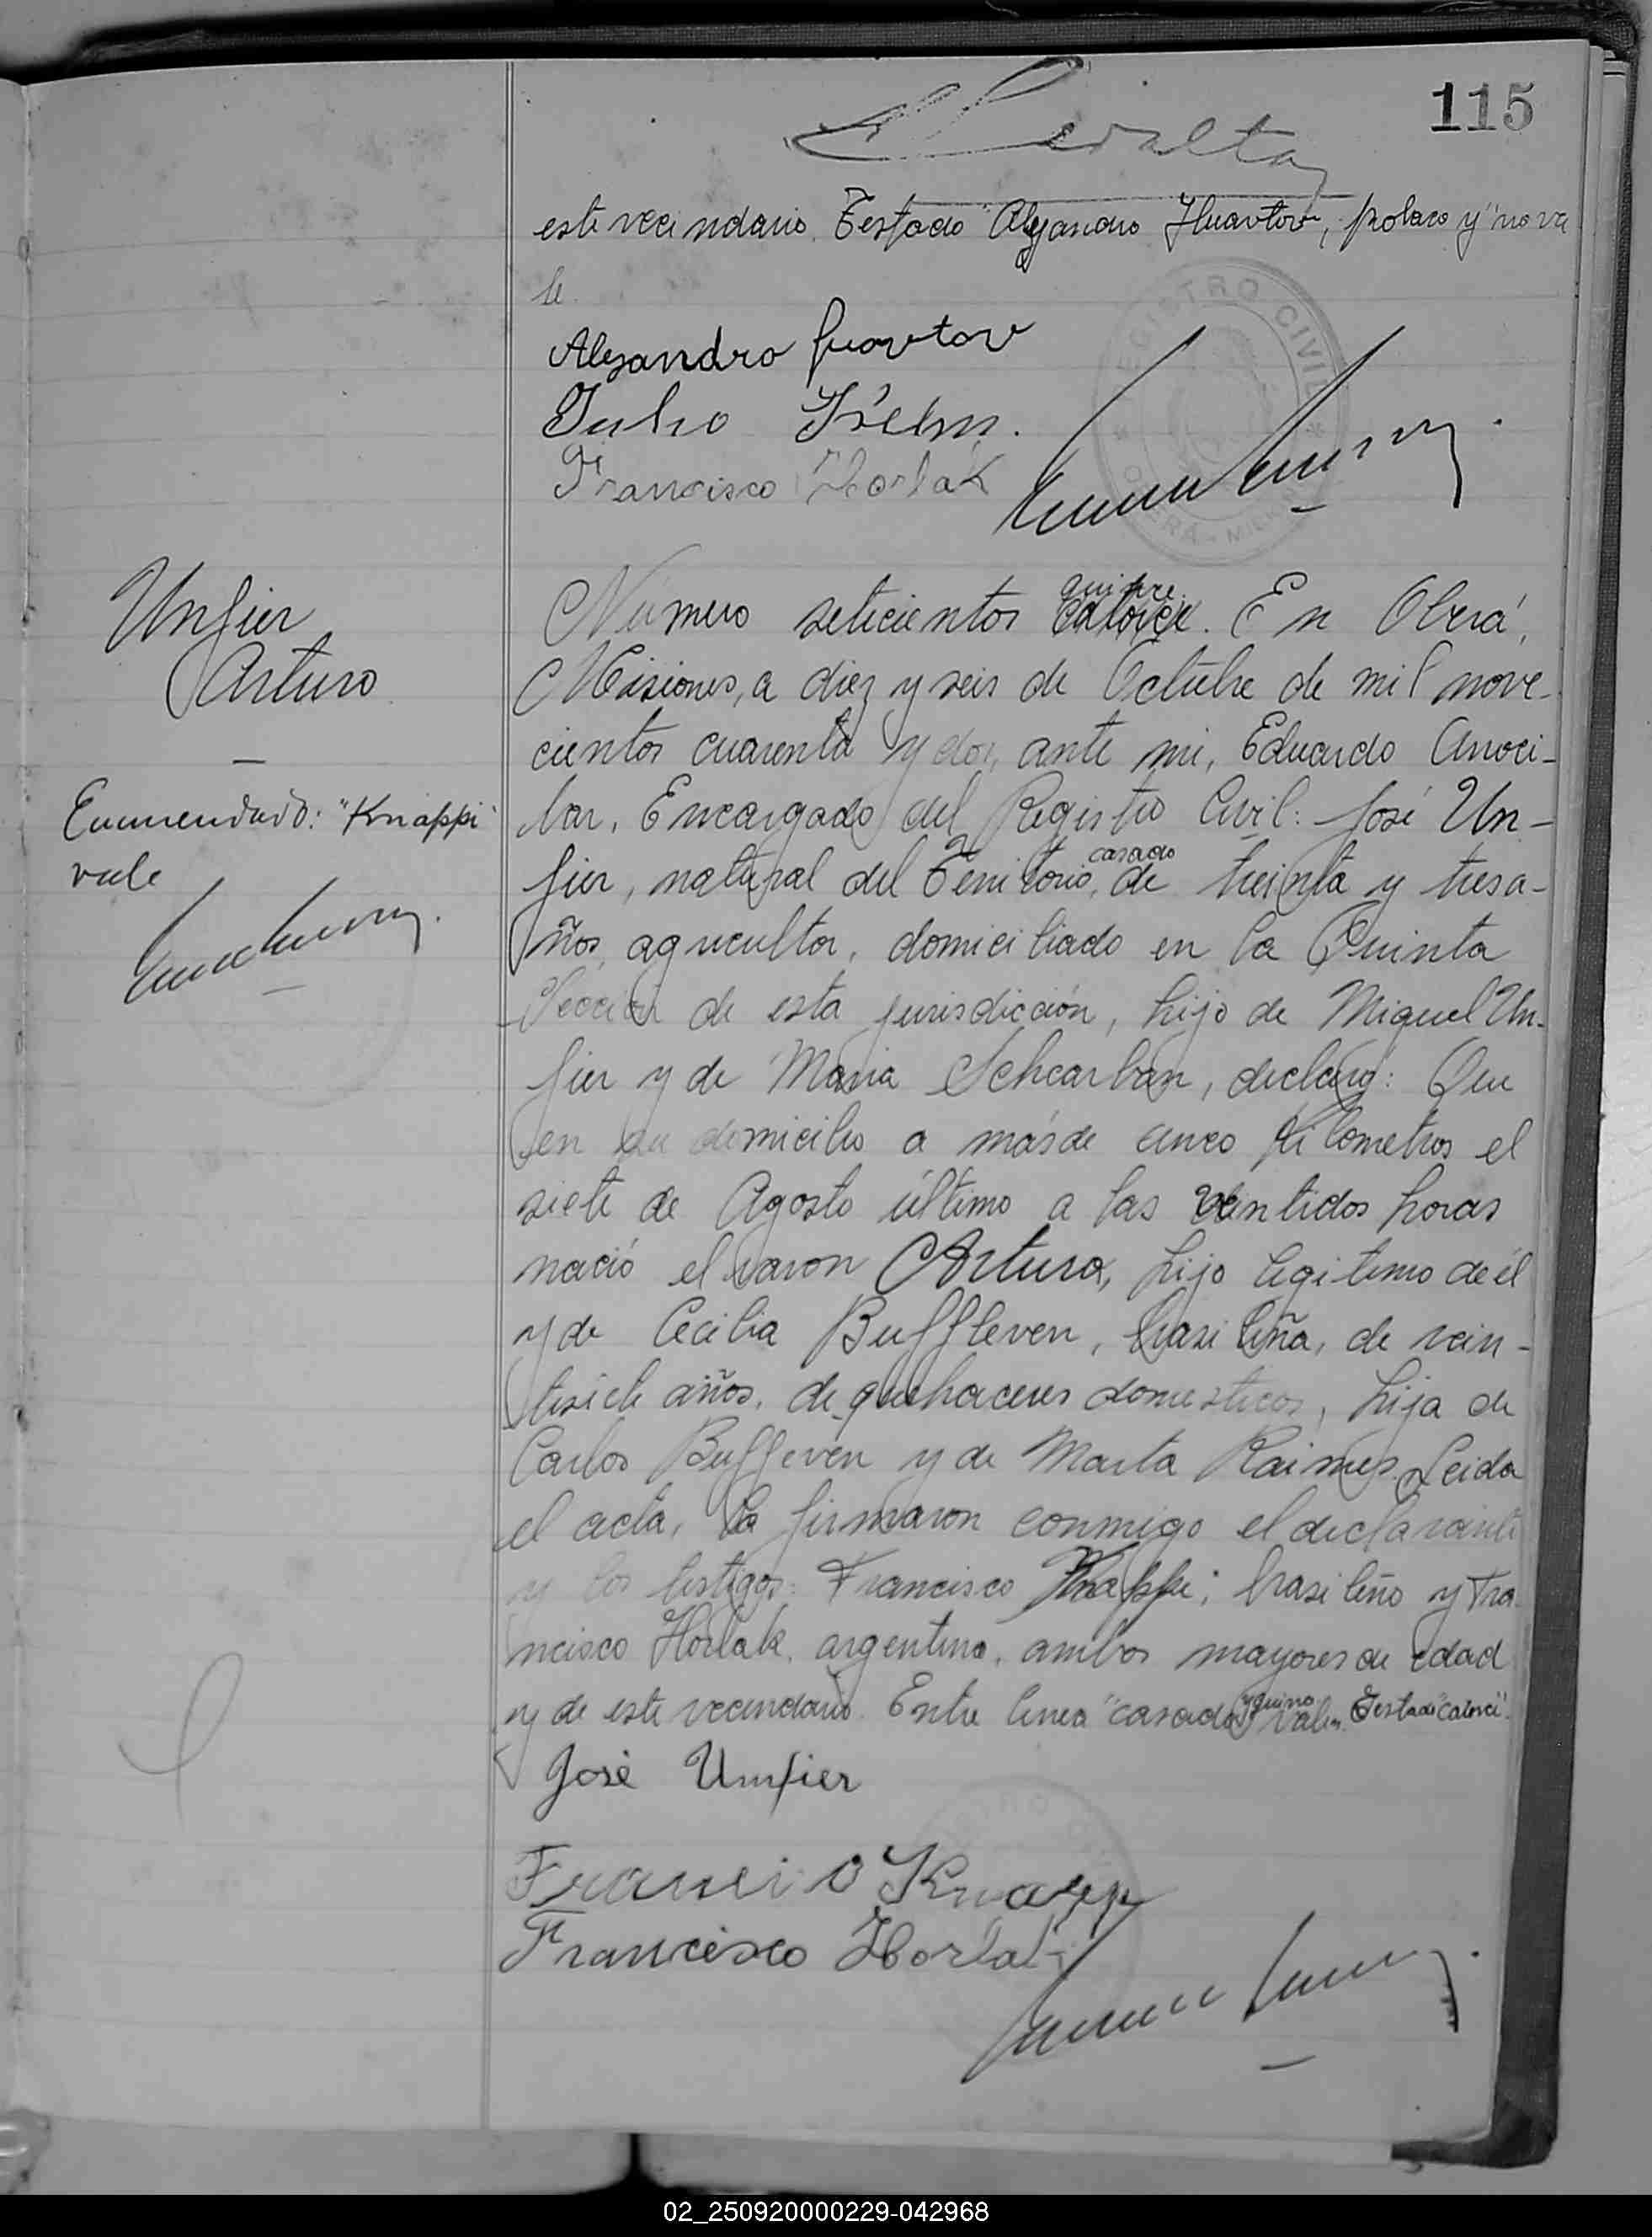 115
Peralta
este vecindario. Testado Alejandro Huavtov, polaco y "no va
le.
Alejandro
Julio
Francisco Horlak
REGISTRO CIVIL
OBERÁ - MISIONES
Unfier
Arturo
Enmendado: "Knappi"
vale
quince
Número setecientos catorce. En Oberá,
Misiones, a diez y seis de Octubre de mil nove-
cientos cuarenta y dos, ante mi, Eduardo Arroci-
bar, Encargado del Registro Civil: José Un-
casado
fier, natural del Territorio, de treinta y tres a-
ños, agricultor, domiciliado en la Quinta
Sección de esta jurisdicción, hijo de Miguel Un-
fier y de Maria Schcarban, declaró: Que
en su domicilio a más de cinco kilometros el
siete de Agosto último a las veintidos horas
nació el varon Arturo, hijo legitimo de él
y de Cecilia Buffleven, brasileña, de vein-
tisiete años, de quehaceres domesticos, hija de
Carlos Buffeven y de Marta Raimes. Leida
el acta, la firmaron conmigo el declarante
y los testigos: Francisco Knappi; brasileño y Fra
ncisco Horlak, argentino, ambos mayores de edad
y de este vecindario. Entre linea "casado y quince" valen. Testado "catorce".
José Unfier
Francisco Knapp
Francisco Horlak
02_250920000229-042968